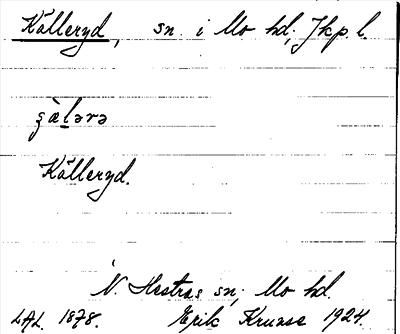 Källeryd, sn. i Mo hd, Jkp. l.
ʂàləra
Källeryd.
N. Hestras sn, Mo hd.
LAL. 1878. Erik Kruuse 1924.